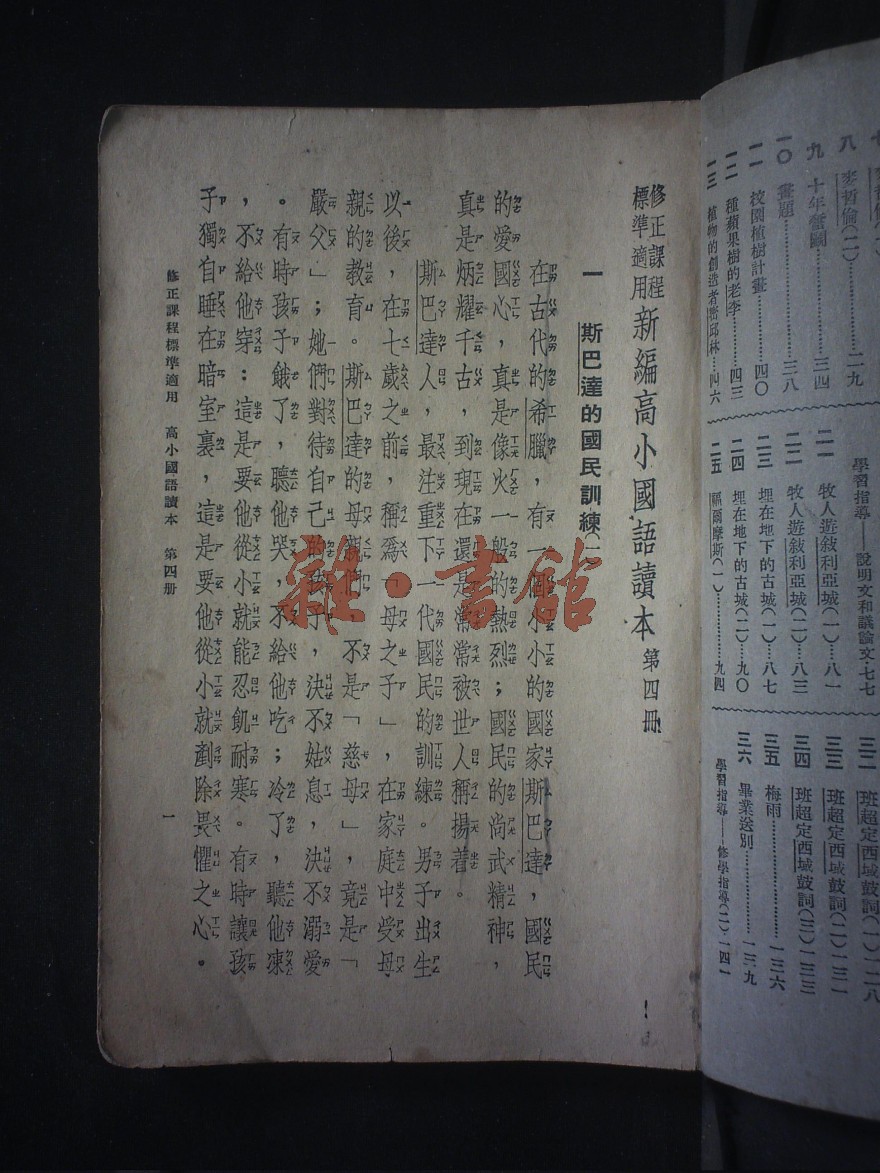 八 麥哲倫(二)……二九
九 十年奮鬭……三四
一〇 畫題……三八
一一 校園植樹計畫……四〇
一二 種蘋果樹的老李……四三
一三 植物的創造者密邱林…四六
學習指導——說明文和議論文 七七
二一 牧人遊敍利亞城(一)…八一
二二 牧人遊敍利亞城(二)…八三
二三 埋在地下的古城(一)…八七
二四 埋在地下的古城(二)…九〇
二五 福爾摩斯(一)……九四
三二 班超定西域鼓詞(一)一二八
三三 班超定西域鼓詞(二)一三一
三四 班超定西域鼓詞(三)一三三
三五 梅雨……一三六
三六 畢業送別……一三九
學習指導——修學指導(二)一四一
修正課程標準適用 新編高小國語讀本 第四冊
一 斯巴達的國民訓練(一
在古代的希臘,有一個小小的國家斯巴達,國民
的愛國心,真是像火一般的熱烈;國民的尚武精神,
真是炳耀千古,到現在還是常常被世人稱揚着。
斯巴達人,最注重下一代國民的訓練。男子出生
以後,在七歲之前,稱爲「母之子」,在家庭中受母
親的教育。斯巴達的母親們,不是「慈母」,竟是「
嚴父」;她們對待自己的孩子,決不姑息,決不溺愛
。有時孩子餓了,聽他哭,不給他吃;冷了,聽他凍
,不給他穿:這是要他從小就能忍飢耐寒。有時讓孩
子獨自睡在暗室裏,這是要他從小就剷除畏懼之心。
修正課程標準適用 高小國語讀本 第四冊 一
雜·書館